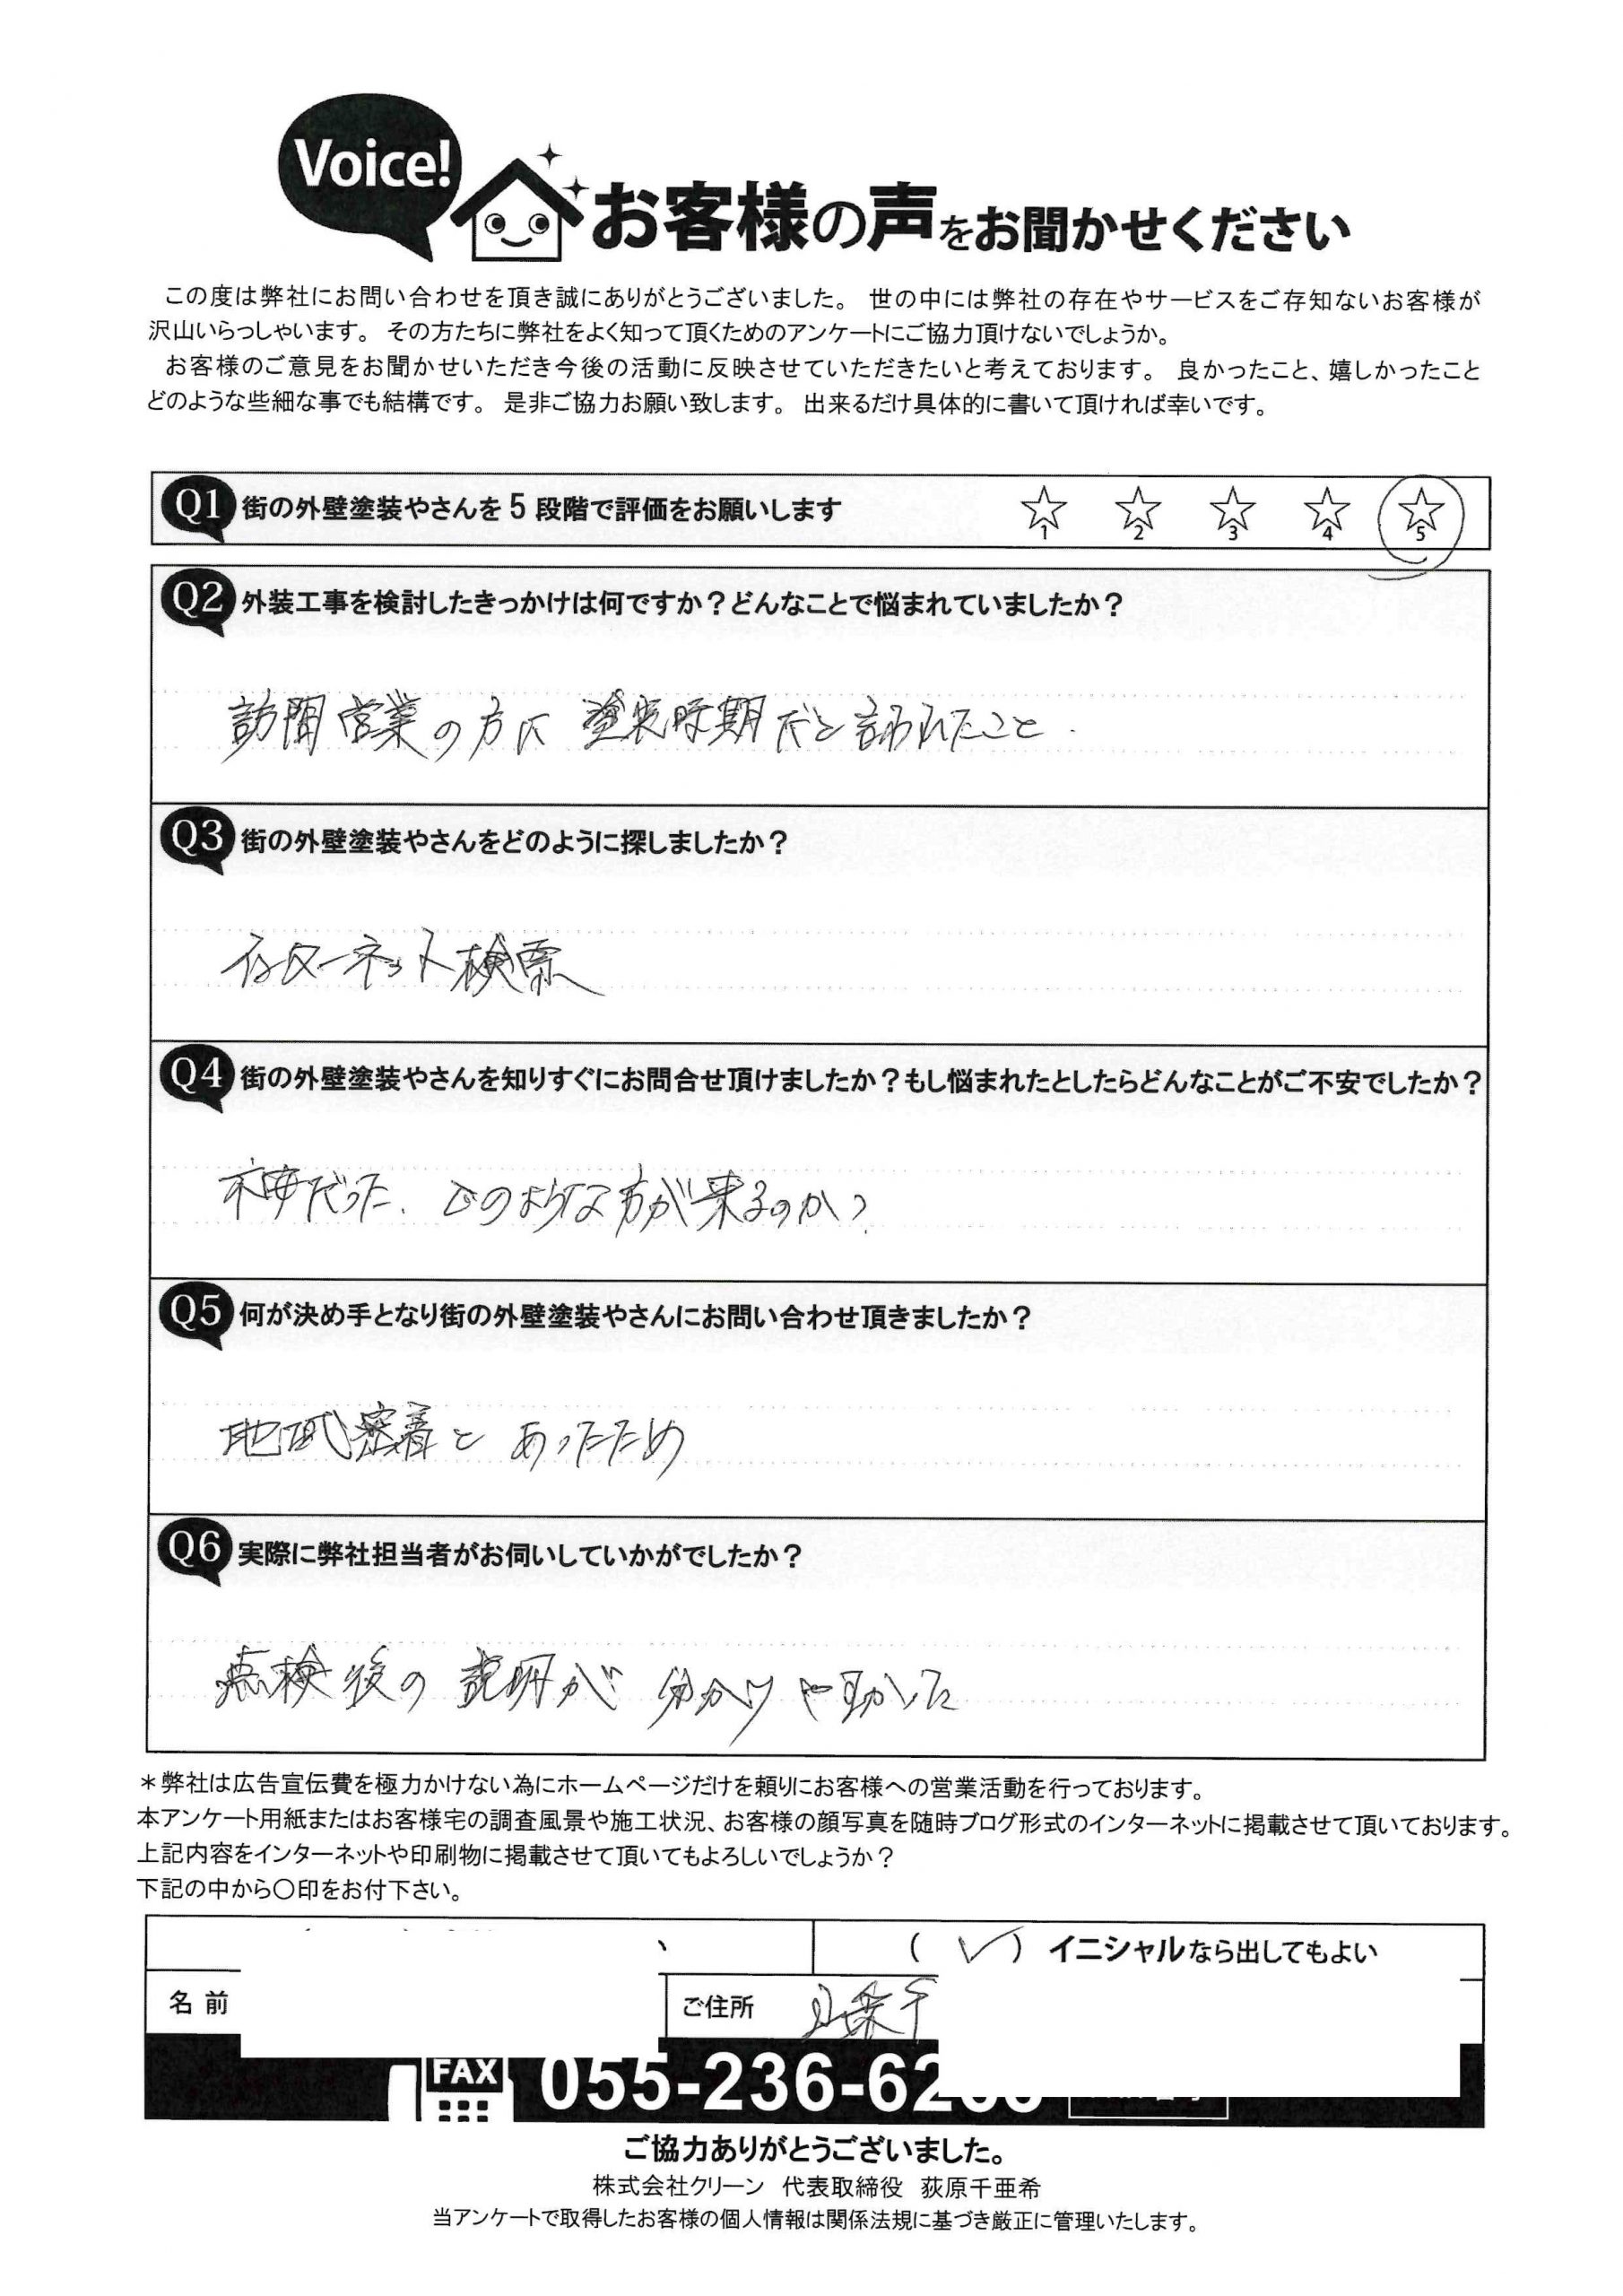 Voice!
お客様の声をお聞かせください
この度は弊社にお問い合わせを頂き誠にありがとうございました。 世の中には弊社の存在やサービスをご存知ないお客様が
沢山いらっしゃいます。 その方たちに弊社をよく知って頂くためのアンケートにご協力頂けないでしょうか。
お客様のご意見をお聞かせいただき今後の活動に反映させていただきたいと考えております。 良かったこと、嬉しかったこと
どのような些細な事でも結構です。 是非ご協力お願い致します。 出来るだけ具体的に書いて頂ければ幸いです。
Q1 街の外壁塗装やさんを5段階で評価をお願いします ☆1 ☆2 ☆3 ☆4 ☆5
Q2 外装工事を検討したきっかけは何ですか？どんなことで悩まれていましたか？
訪問営業の方に 塗装時期だと言われたこと.
Q3 街の外壁塗装やさんをどのように探しましたか？
インターネット検索
Q4 街の外壁塗装やさんを知りすぐにお問合せ頂けましたか？もし悩まれたとしたらどんなことがご不安でしたか？
不安だった. どのような方が来るのか？
Q5 何が決め手となり街の外壁塗装やさんにお問い合わせ頂きましたか？
地域密着と あったため
Q6 実際に弊社担当者がお伺いしていかがでしたか？
点検後の 説明が 分かりや
＊弊社は広告宣伝費を極力かけない為にホームページだけを頼りにお客様への営業活動を行っております。
本アンケート用紙またはお客様宅の調査風景や施工状況、お客様の顔写真を随時ブログ形式のインターネットに掲載させて頂いております。
上記内容をインターネットや印刷物に掲載させて頂いてもよろしいでしょうか？
下記の中から〇印をお付下さい。
( ✓ ) イニシャルなら出してもよい
名 前
ご住所
FAX 055-236-62
ご協力ありがとうございました。
株式会社クリーン 代表取締役 荻原千亜希
当アンケートで取得したお客様の個人情報は関係法規に基づき厳正に管理いたします。